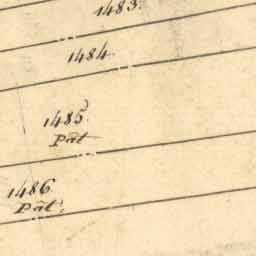 1483.
1484.
1485.
Pāt
1486.
Pāt.